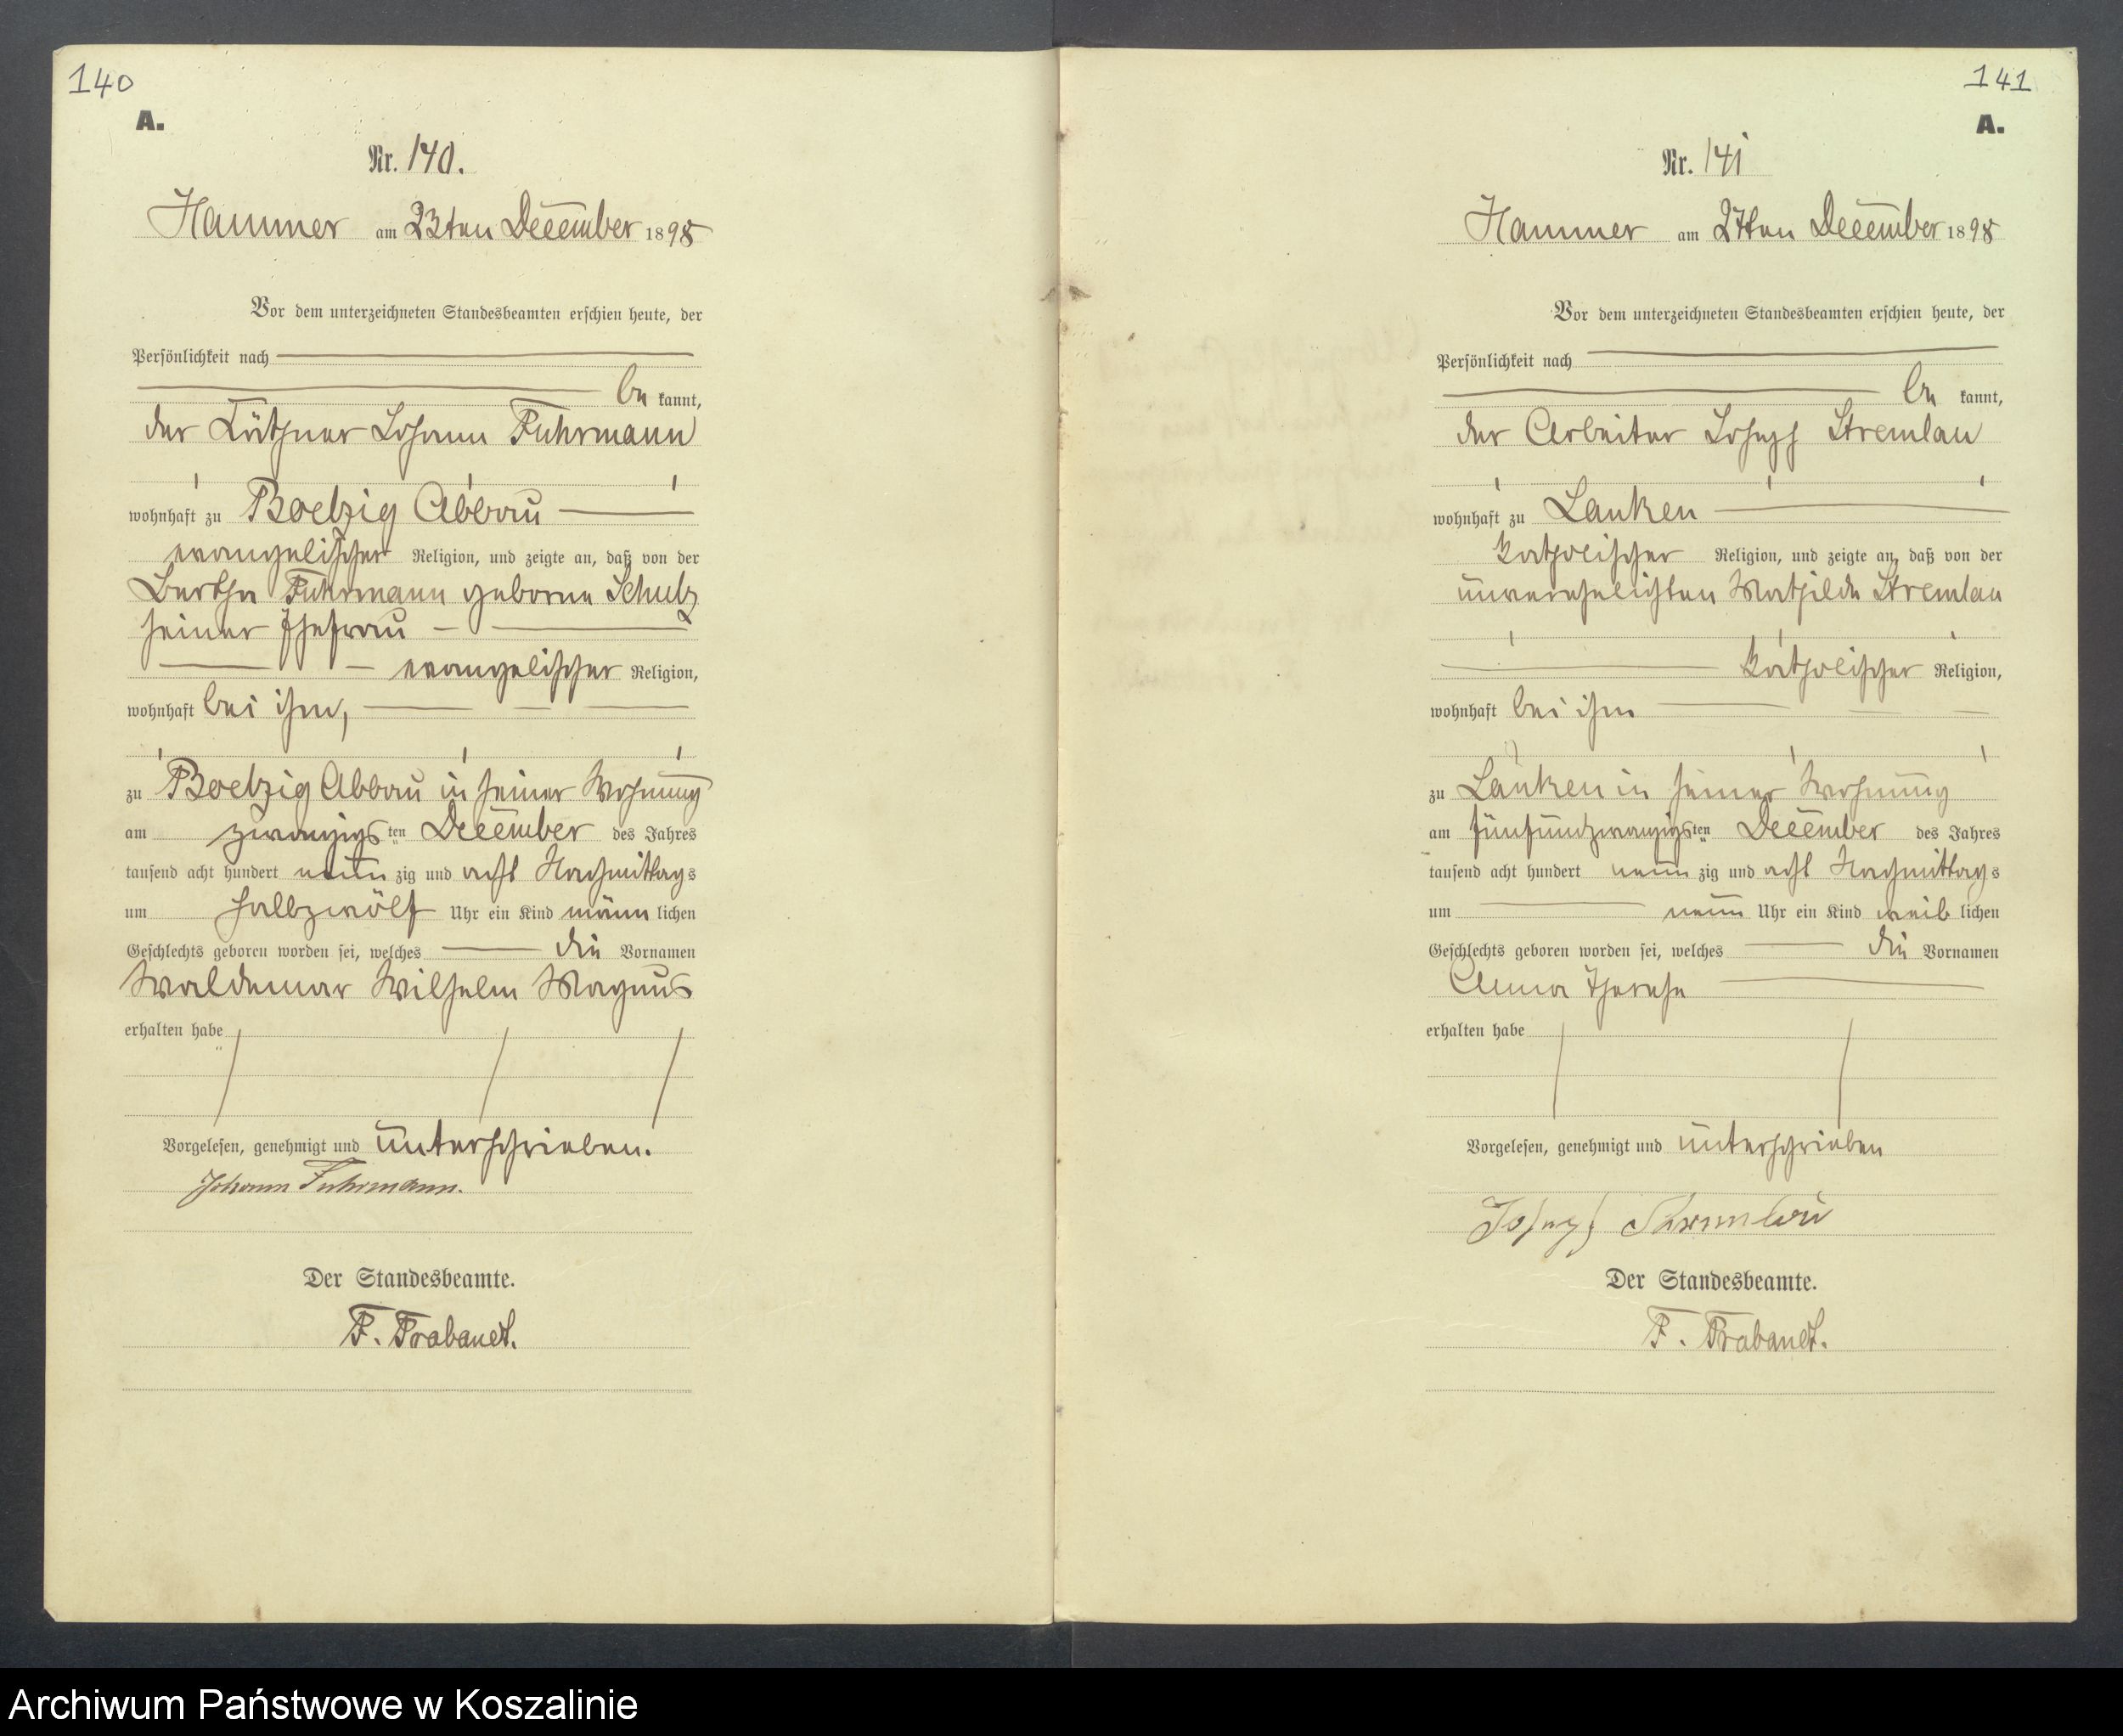 140
A.
Nr. 140.
Hammer am 23ten December 1898
Vor dem unterzeichneten Standesbeamten erschien heute, der
Persönlichkeit nach
be kannt,
der Käthner Johann Fuhrmann
wohnhaft zu Boetzig Abbau
evangelischer Religion, und zeigte an, daß von der
Bertha Fuhrmann geborne Schulz
seiner Ehefrau
evangelischer Religion,
wohnhaft bei ihm,
zu Boetzig Abbau in seiner Wohnung
am zwanzigs ten December des Jahres
tausend acht hundert neun zig und acht Nachmittags
um halbzwölf Uhr ein Kind männ lichen
Geschlechts geboren worden sei, welches die Vornamen
Waldemar Wilhelm Magnus
erhalten habe
Vorgelesen, genehmigt und unterschrieben.
Johann Fuhrmann.
Der Standesbeamte.
F. Trabandt.
141
A.
Nr. 141
Hammer am 27ten December 1898
Vor dem unterzeichneten Standesbeamten erschien heute, der
Persönlichkeit nach
be kannt,
der Arbeiter Joseph Stremlau
wohnhaft zu Lanken
katholischer Religion, und zeigte an, daß von der
unverehelichten Mathilde Stremlau
katholischer Religion,
wohnhaft bei ihm
zu Lanken in seiner Wohnung
am fünfundzwanzigs ten December des Jahres
tausend acht hundert neun zig und acht Nachmittags
um neun Uhr ein Kind weib lichen
Geschlechts geboren worden sei, welches die Vornamen
Anna Therese
erhalten habe
Vorgelesen, genehmigt und unterschrieben
Joseph Stremlau
Der Standesbeamte.
F. Trabandt.
Archiwum Państwowe w Koszalinie